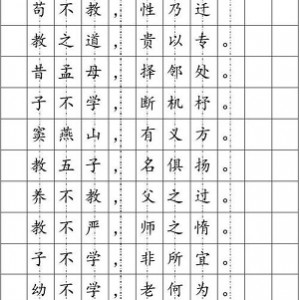 苟不教，性乃迁。
教之道，贵以专。
昔孟母，择邻处。
子不学，断机杼。
窦燕山，有义方。
教五子，名俱扬。
养不教，父之过。
教不严，师之惰。
子不学，非所宜。
幼不学，老何为。